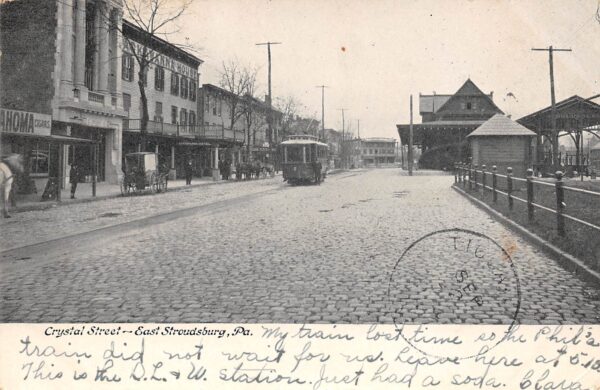 AHOMA
Crystal Street — East Stroudsburg, Pa.
TIOGA
SEP
My train lost time so the Phil's
train did not wait for us. Leave here at 5-10
This is the D. L. & W. station. Just had a soda. Clara.